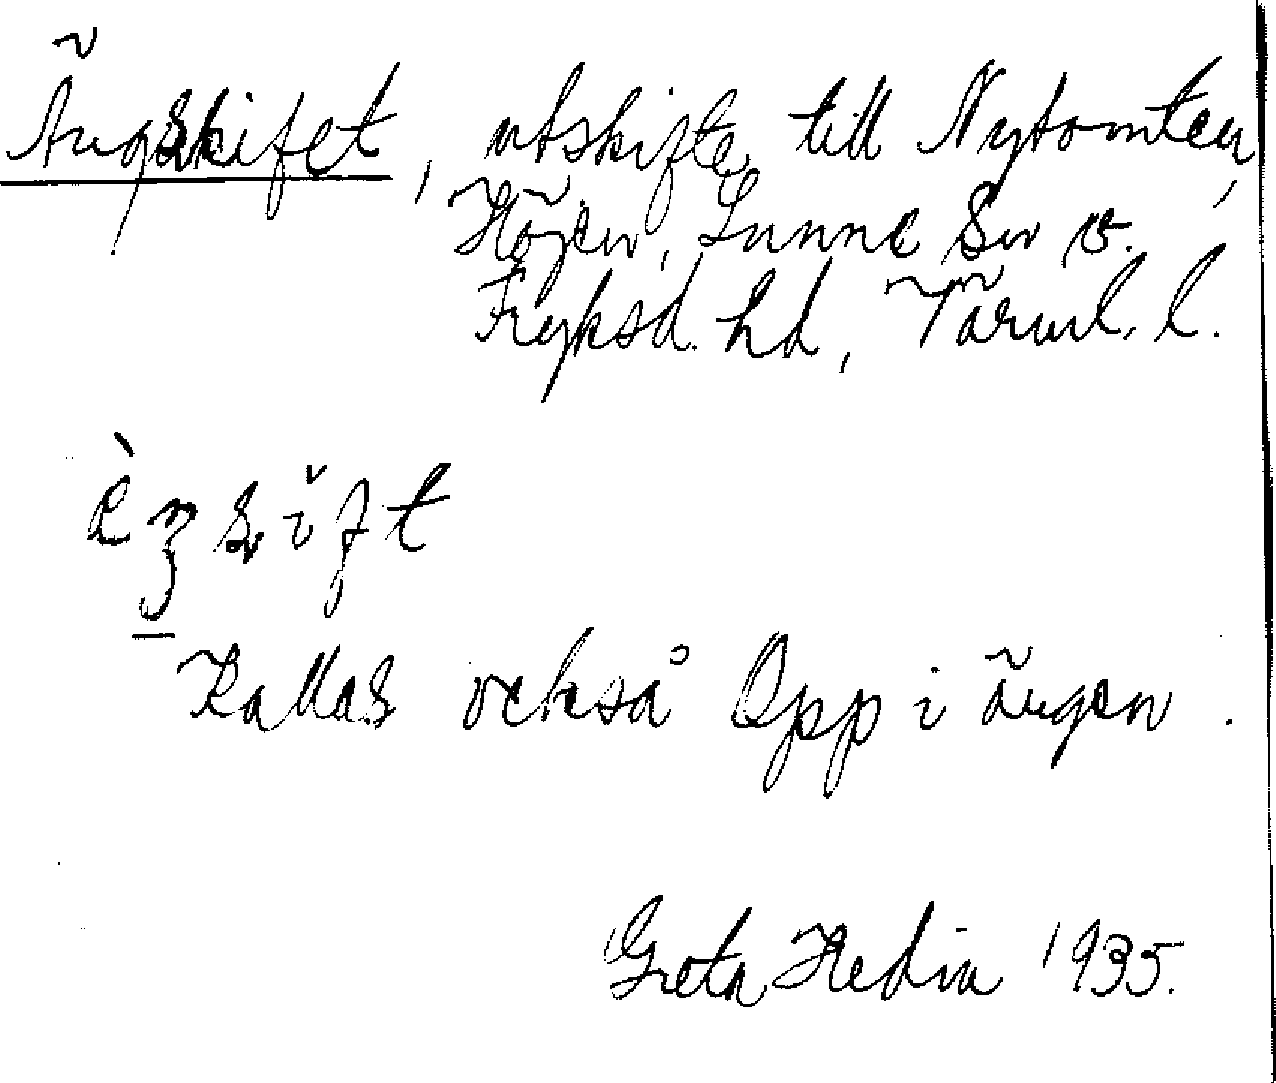 Ängskifet, utskifte till Nytomten,
Höjen, Sunne sn v.
Fryksd. hd, Värml. l.
Kallas också Opp i ängen.
Greta Hedin 1935.